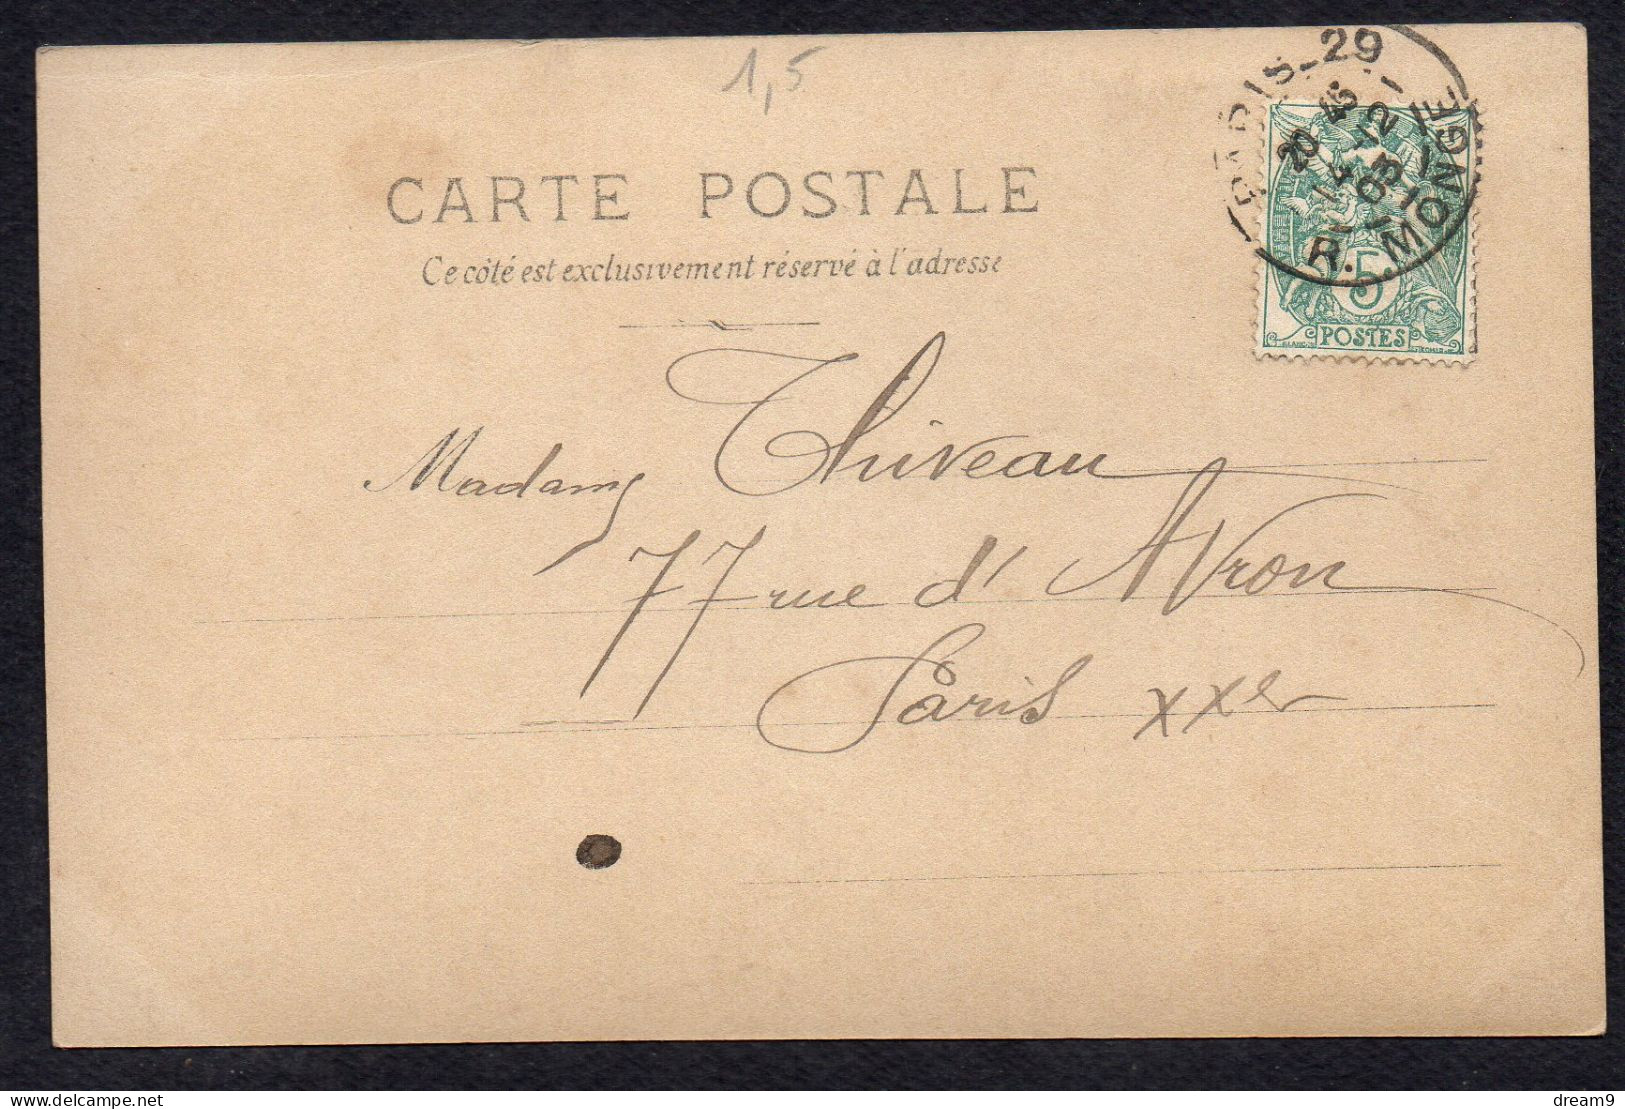 1,5
PARIS-29
20 45
14-12
03
R. MONGE
5
POSTES
CARTE POSTALE
Ce côté est exclusivement réservé à l'adresse
Madame Thiveau
77 rue d'Avron
Paris XXe
delcampe.net
dream9